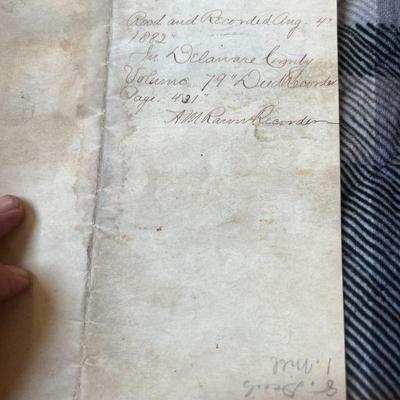 Recd and Recorded Aug. 4"
1882"
In Delaware County
Volume 79" Deed Recorder
Page. 431"
AM Rawn Recorder
8. Deeds
1. Will